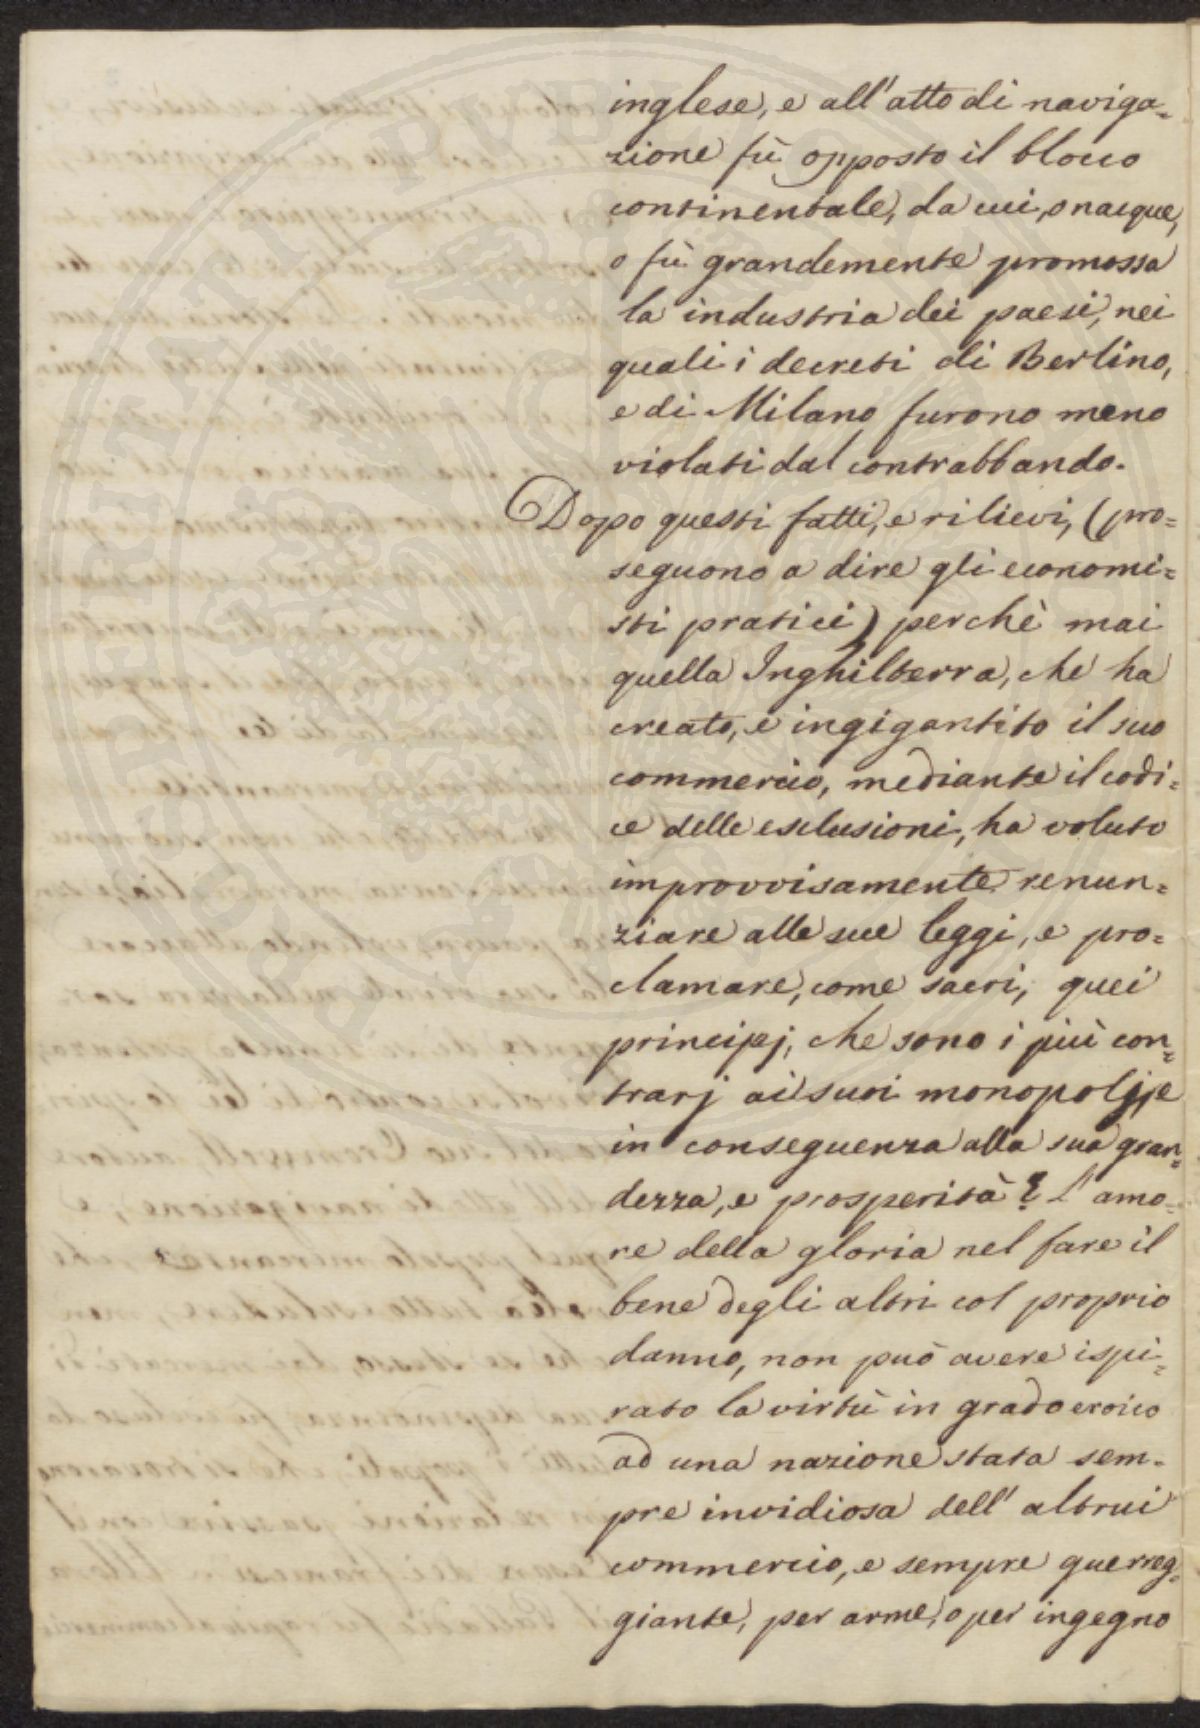 inglese, e all'atto di naviga=
zione fù opposto il blocco
continentale, da cui, o nacque,
o fù grandemente promossa
la industria dei paesi, nei
quali i decreti di Berlino,
e di Milano furono meno
violati dal contrabbando.
Dopo questi fatti, e rilievi, (pro=
seguono a dire gli economi=
sti pratici) perchè mai
quella Inghilterra, che ha
creato, e ingigantito il suo
commercio, mediante il codi=
ce delle esclusioni, ha voluto
improvvisamente renun=
ziare alle sue leggi, e pro=
clamare, come sacri, quei
principj, che sono i più con=
trarj ai suoi monopolj, e
in conseguenza alla sua gran=
dezza, e prosperità? L'amo=
re della gloria nel fare il
bene degli altri col proprio
danno, non può avere ispi=
rato la virtù in grado eroico
ad una nazione stata sem=
pre invidiosa dell'altrui
commercio, e sempre guerreg=
giante, per arme, o per ingegno